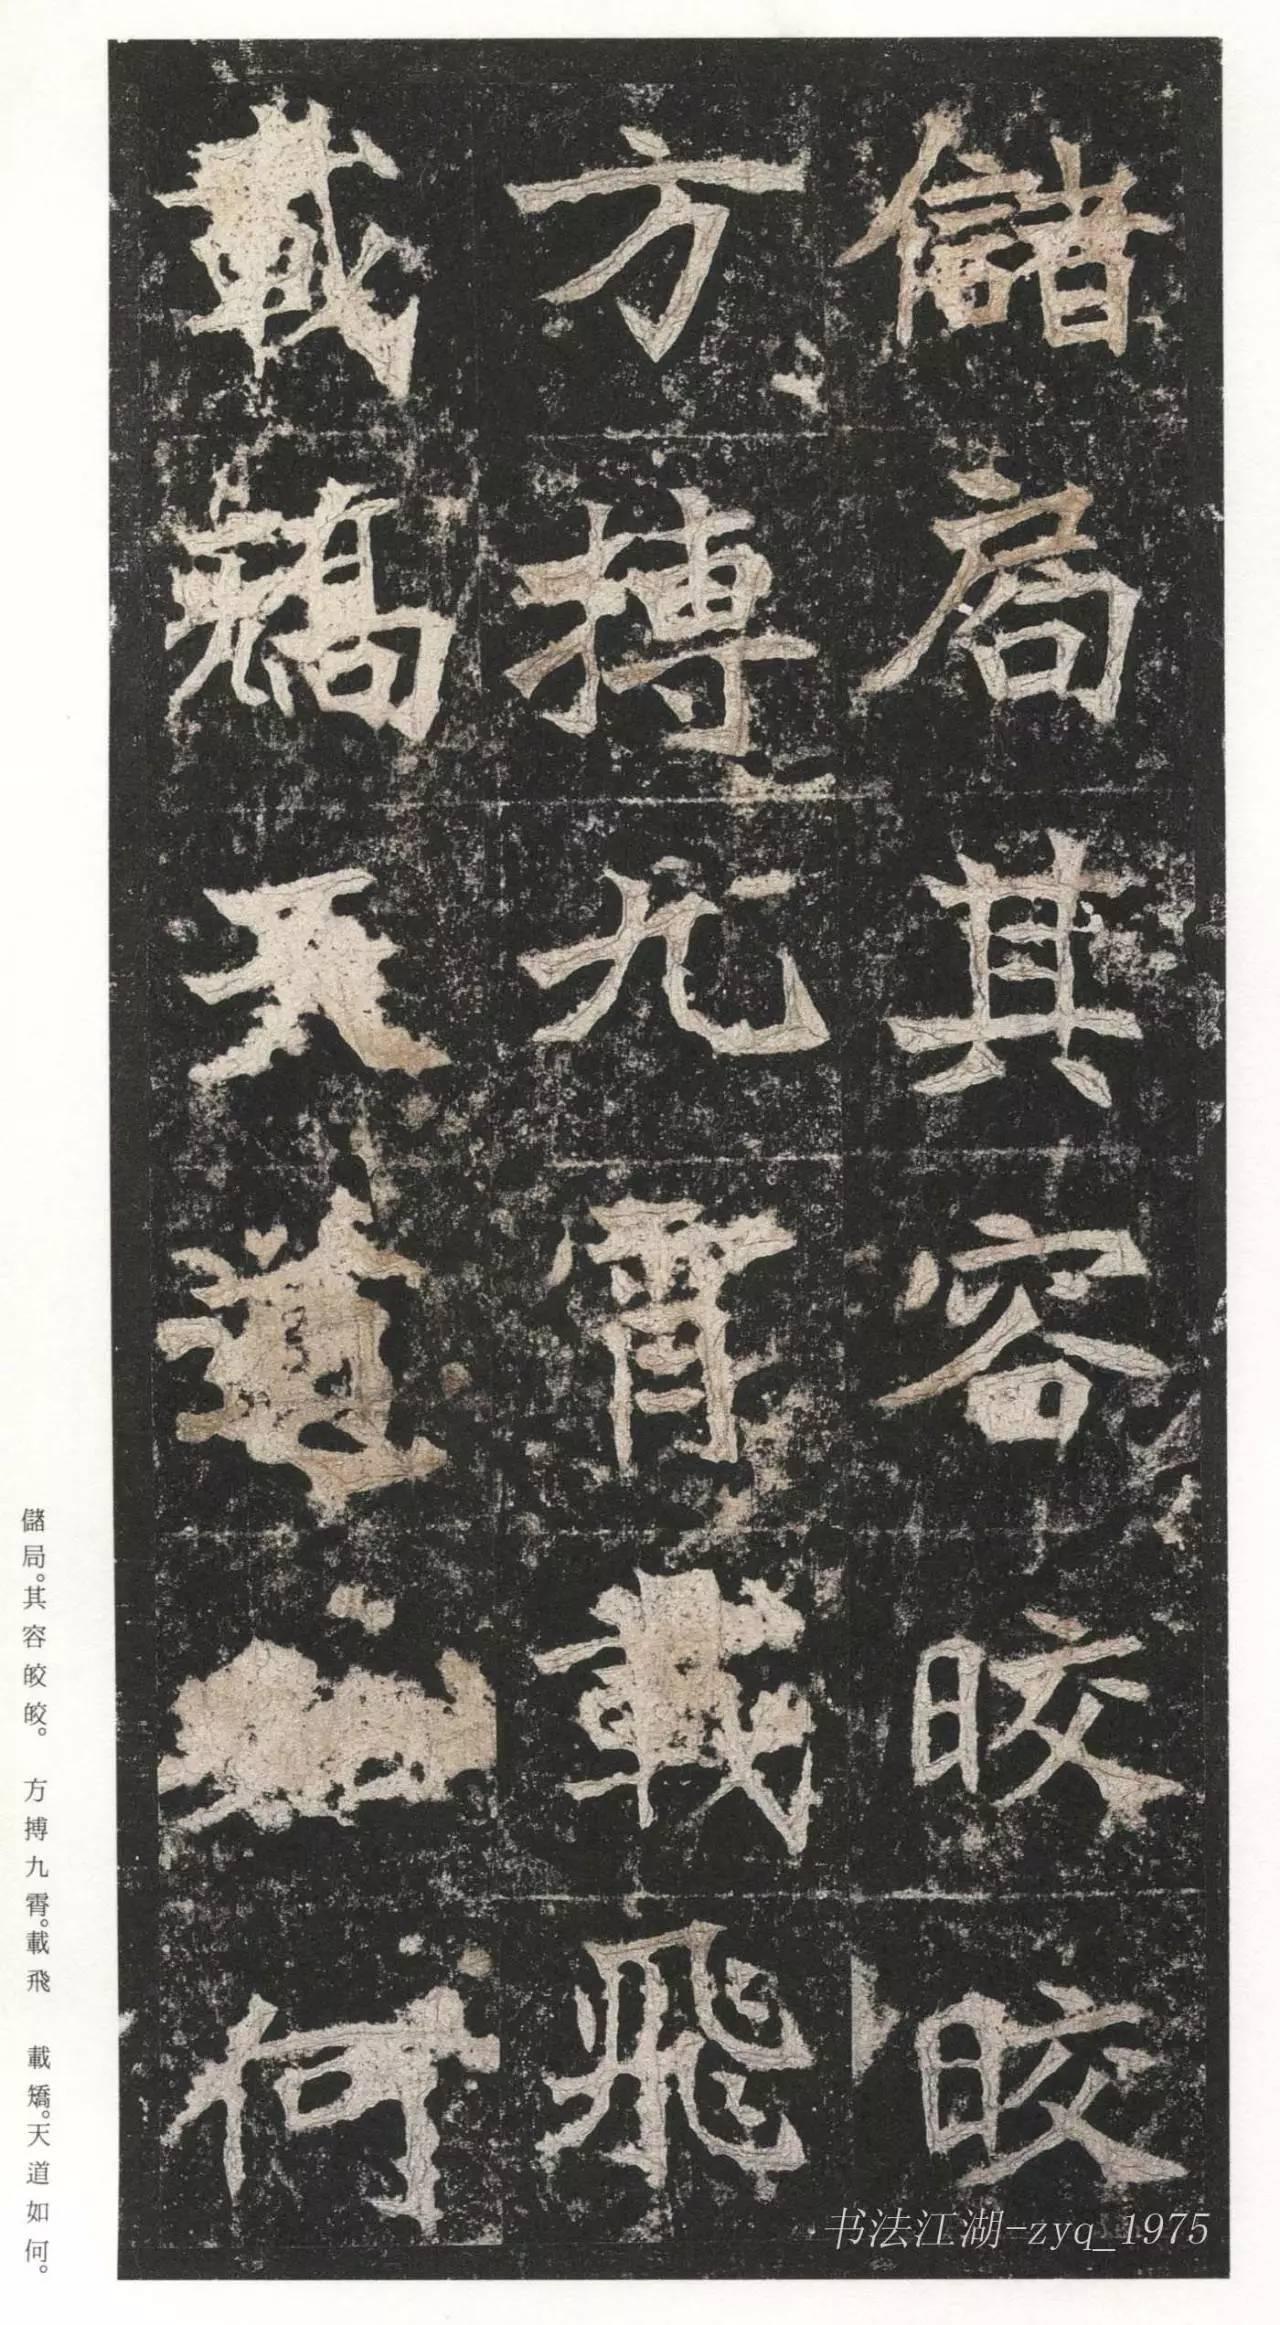 儲局其容皎皎
方搏九霄載飛
載矯天道如何
儲局。其容皎皎。 方搏九霄。載飛 載矯。天道如何。
书法江湖-zyq_1975